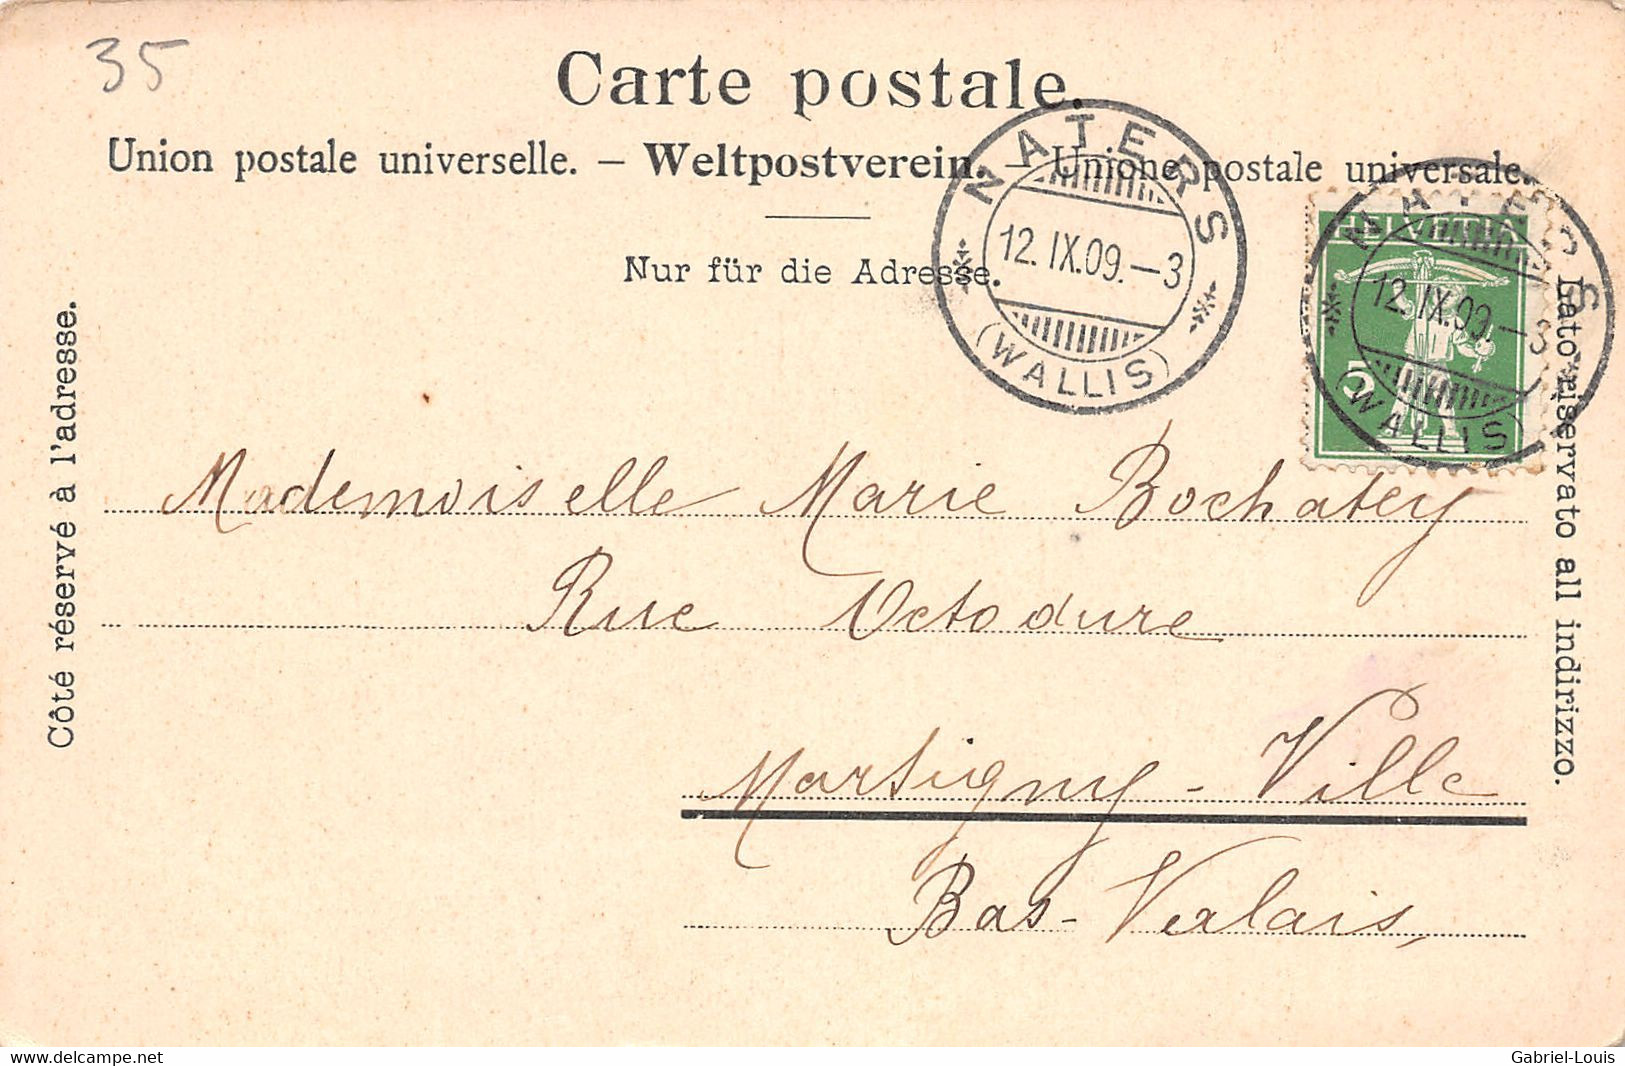 35
Carte postale.
Union postale universelle. – Weltpostverein. – Unione postale universale.
Nur für die Adresse.
Côté réservé à l'adresse.
Lato riservato all indirizzo.
NATERS
12.IX.09.–3
(WALLIS)
HELVETIA
5
NATERS
12.IX.09.–3
(WALLIS)
Mademoiselle Marie Bochatey
Rue Octodure
Martigny-Ville
Bas-Valais,
delcampe.net
Gabriel-Louis